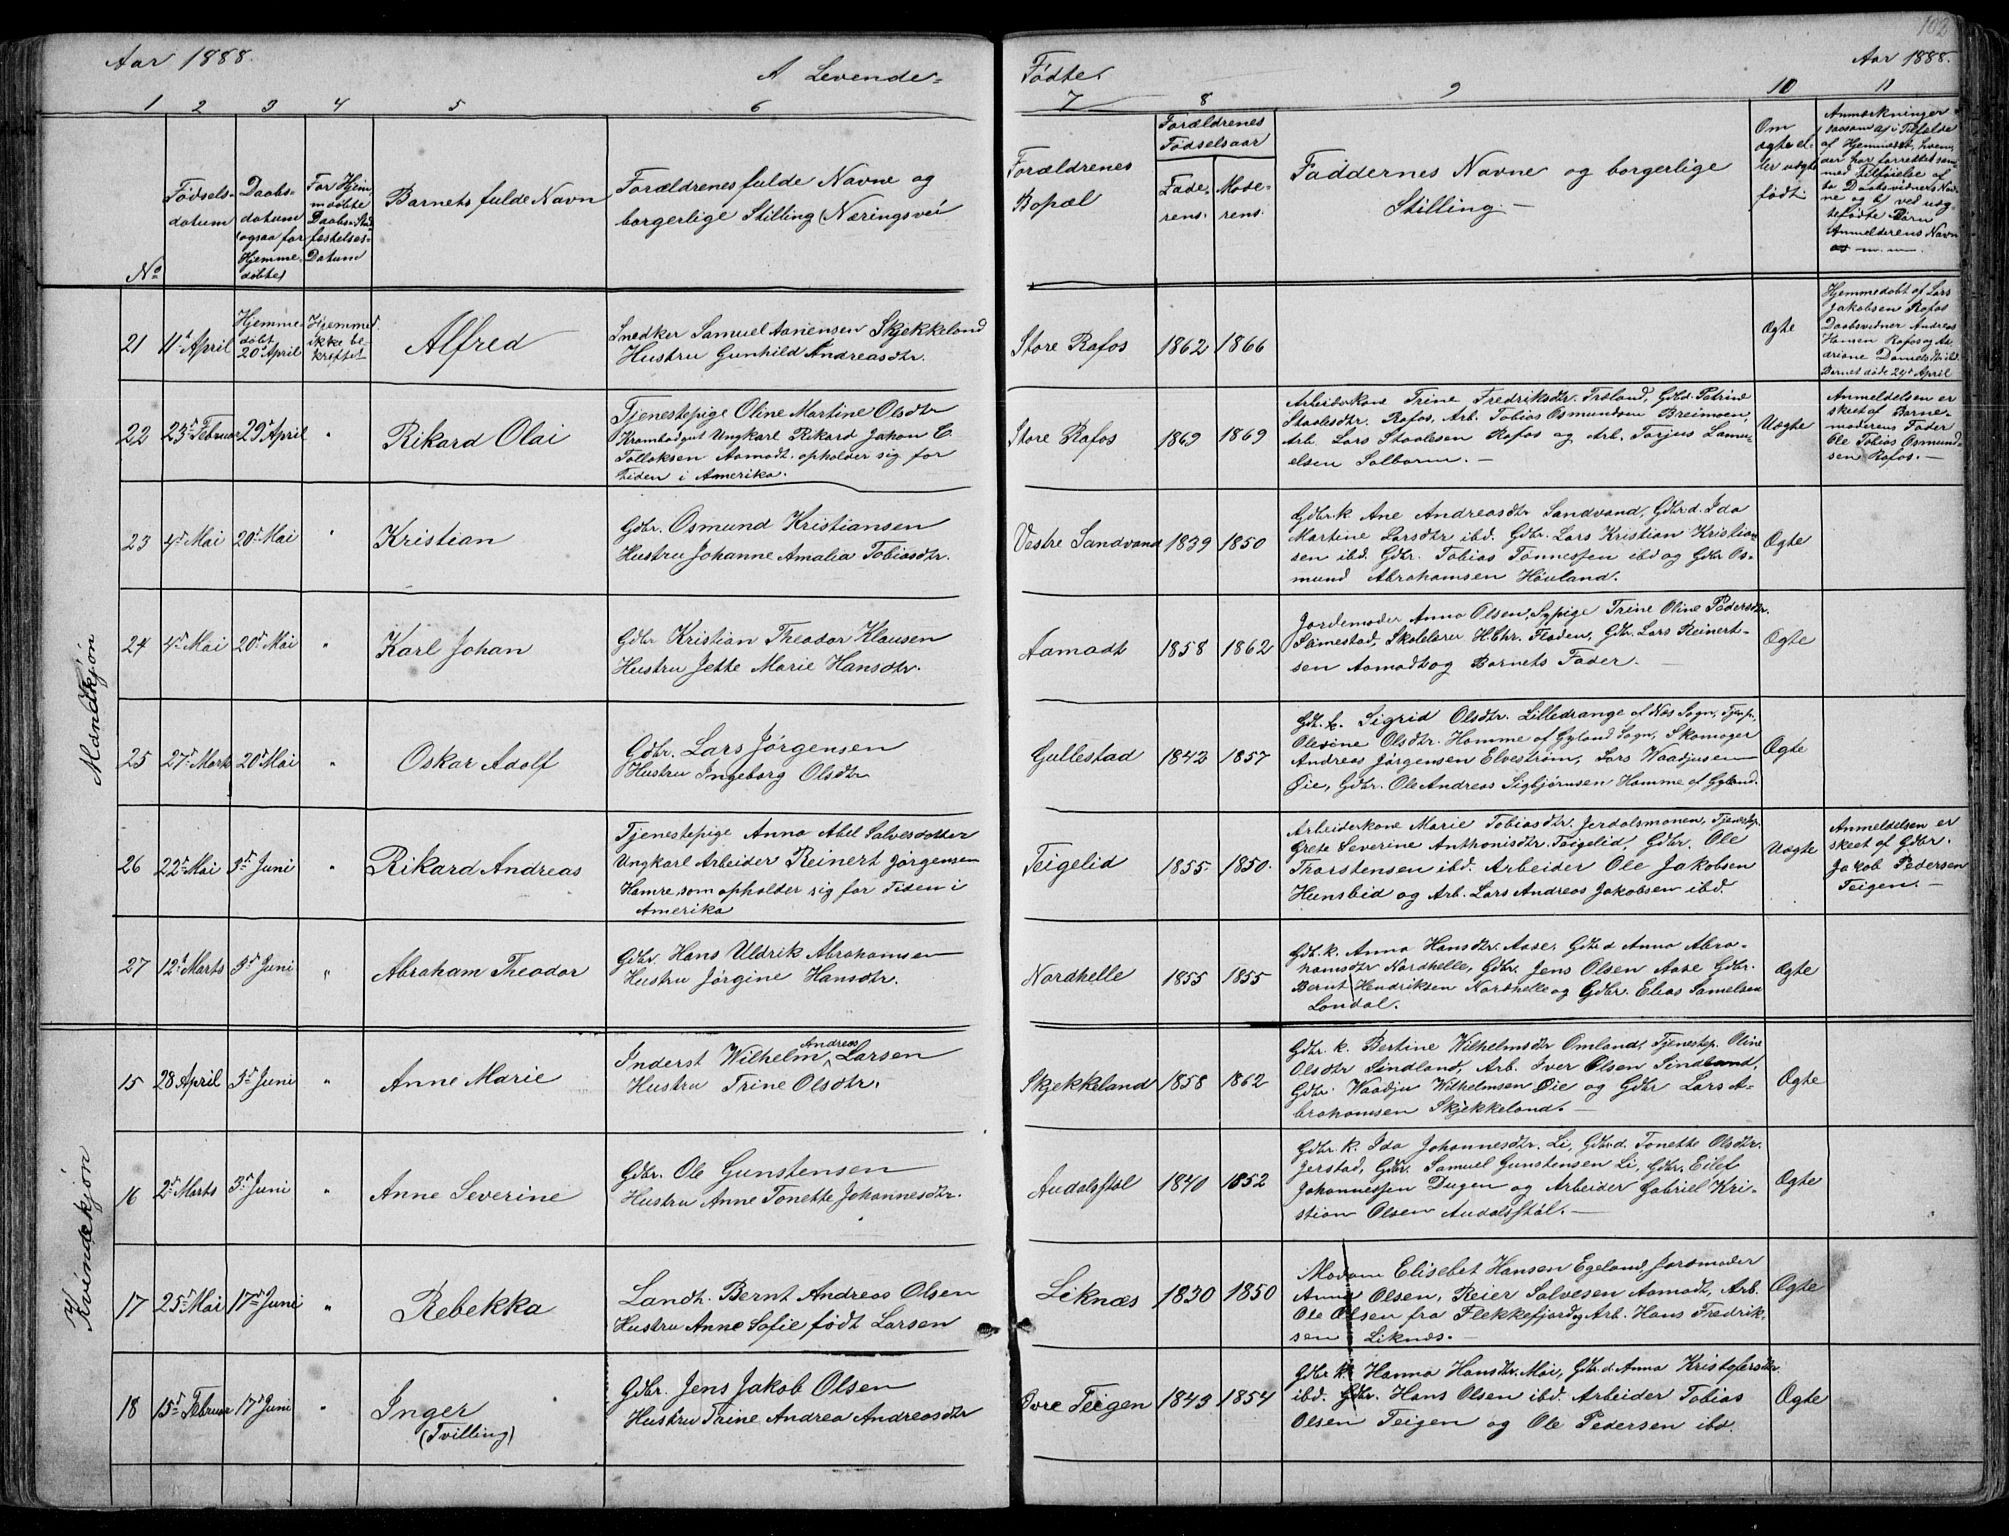 102
Aar 1888.
A Levende=
Fødte.
Aar 1888.
1 2 3 4 5 6
7 8 9 10 11
No
Fødsels-
datum
Daabs-
datum
(ogsaa for
Hjemme-
døbte)
For Hjem
mdøbte
Daabs Stad
festelses-
Datum
Barnets fulde Navn
Forældrenes fulde Navne og
borgerlige Stilling (Næringsvei
Forældrenes
Bopæl
Forældrenes
Fødselsaar
Fade-
rens.
Mode-
rens.
Faddernes Navne og borgerlige
Stilling.—
Om
ægte el-
ler uægte
født
Anmærkninger
saasom a) i Tilfælde
af Hjemmedøbt, hvem
der har forrettet sam-
med tilføielse af
Daabsvidnernes Nav-
ne og b) ved uæg-
tefødte Børn
Anmelderens Navn
Mandkjøn
21
11t April
Hjemme-
døbt
20d April
Hjemmed.
ikke be-
kræftet
Alfred
Snedker Samuel Aanensen Skjekkeland
Hustru Gunhild Andreasdtr.
Store Rafos
1862
1866
Ægte
Hjemmedøbt af Lars
Jakobsen Rafos
Daabsvidner Andreas
Hansen Rafos og An
drione Daniels
Barnet døde 29de April
22
23d Februar
29d April
"
Rikard Olai
Tjenestepige Oline Martine Olsdtr
Krambodgut Ungkarl Rikard Jakon C.
Tolloksen Aamodt. opholder sig for
Tiden i Amerika.
Store Rafos
1869
1869
Arbeiderkone Trine Fredriksdtr. Træland, Gdbd. Patrine
Staalesdtr. Rafos, Arb. Tobias Osmundsen Breimoen,
Arb. Lars Staalesen Rafos og Arb. Torjus Samu-
elsen Solbarm.—
Uægte
Anmeldelsen er
skeet af Barne-
moderens Fader
Ole Tobias Osmund
sen Rafos.—
23
4d Mai
20d Mai
"
Kristian
Gdbr. Osmund Kristiansen
Hustru Johanne Amalia Tobiasdtr.
Vestre Sandvand
1839
1850
Gdbr.k. Ane Andreasdtr Sandvand, Gdbr.d. Ida
Martine Larsdtr ibd. Gdbr. Lars Kristian Kristian
sen ibd. Gdbr. Tobias Tønnessen ibd og Gdbr Os-
mund Abrahamsen Høuland.
Ægte
24
4d Mai
20d Mai
"
Karl Johan
Gdbr Kristian Theodor Klausen
Hustru Jette Marie Hansdtr.
Aamodt
1858
1862
Jordemoder Anna Olsen, Sypige Trine Oline Pedersdtr.
Sånestad, Skolelærer H. Chr. Floden, Gdbr. Lars Reinert-
sen Aamodt og Barnets Fader.—
Ægte
25
27d Marts
20d Mai
"
Oskar Adolf
Gdbr. Lars Jørgensen
Hustru Ingeborg Olsdtr
Gullestad
1842
1857
Gdbr. k. Sigrid Olsdtr. Lilledrange af Næs Sogn, Tjenp.
Olevine Olsdtr. Homme af Gyland Sogn, Skomager
Andreas Jørgensen Elvestrøm, Lars Waadjusen
Øie, Gdbr. Ole Andreas Sigbjørnsen Homme af Gyland.
Ægte
26
22d Mai
3d Juni
"
Rikard Andreas
Tjenestepige Anna Abel Salvesdotter
Ungkarl Arbeider Reinert Jørgensen
Hamre, som opholder sig for Tiden i
Amerika
Teigelid
1855.
1850.
Arbeiderkone Marie Tobiasdtr. Jerdalsmonen, Tjenestep.
Grete Severine Anthonisdtr. Teigelid, Gdbr. Ole
Thorstensen ibd. Arbeider Ole Jakobsen
Hunsbed og Arb. Lars Andreas Jakobsen ibd.
Uægte
Anmeldelsen er
skeet af Gdbr.
Jakob Pedersen
Teigen.—
27
12d Marts
3d Juni
"
Abraham Theodor
Gdbr. Hans Uldrik Abrahamsen
Hustru Jørgine Hansdtr.
Nordhelle
1855
1855
Gdbr k. Anna Hansdtr. Aase, Gdbr d Anna Abra-
hamsdtr Nordhelle, Gdbr. Jens Olsen Aase Gdbr.
Bernt Hendriksen Nordhelle og Gdbr. Elias Samelsen
Londal.
Ægte
Kvindekjøn
15
28 April
3d Juni
"
Anne Marie
Inderst Wilhelm Andreas Larsen
Hustru Trine Olsdtr.
Skjekkeland
1858
1862
Gdbr. k. Bertine Wilhelmsdtr Omland, Tjenestep. Oline
Olsdtr Sindland, Arb. Iver Olsen Sindland,
Gdbr. Waadju Wilhelmsen Øie og Gdbr Lars A-
brahamsen Skjekkeland.—
Ægte
16
2d Marts
3d Juni
"
Anne Severine
Gdbr. Ole Gunstensen
Hustru Anne Tonette Johannesdtr.
Audalsstøl
1840
1852
Gdbr. k. Ida Johannesdtr. Li, Gdbr.d. Tonette Olsdtr.
Jerstad, Gdbr. Samuel Gunstensen Li, Gdbr. Eilef
Johannessen Dugen og Arbeider Gabriel Kri-
stian Olsen Audalsstøl.—
Ægte
17
25d Mai
17d Juni
"
Rebekka
Landh. Bernt Andreas Olsen
Hustru Anne Sofie født Larsen
Leknæs
1830
1850
Madam Elisebet Hansen Egeland, Jordmoder
Anna Olsen, Reier Salvesen Aamodt, Arb.
Ole Olsen fra Flekkefjord og Arb. Hans Fredrik-
sen Liknæs.—
Ægte
18
15d Februar
17d Juni
"
Inger
(Tvilling)
Gdbr. Jens Jakob Olsen
Hustru Trine Andrea Andreasdtr
Øvre Teigen
1843
1854
Gdbr k. Hanna Hansdtr. Moi, Gdbr.d. Anna Kristofersdtr
ibd. Gdbr. Hans Olsen ibd. Arbeider Tobias
Olsen Teigen og Ole Pedersen ibd.
Ægte